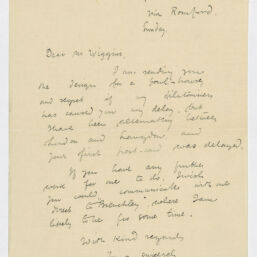 via Romford.
Sunday
Dear Mr Wiggins,
I am sending you
the design for a
and regret if my dilatoriness
has caused you any delay, but
I have been between
London and and
your first post-card was delayed.
If you have any further
work for me to do, I wish
you would communicate with me
direct to where I am
likely to be for some time.
With kind regards
sincerely